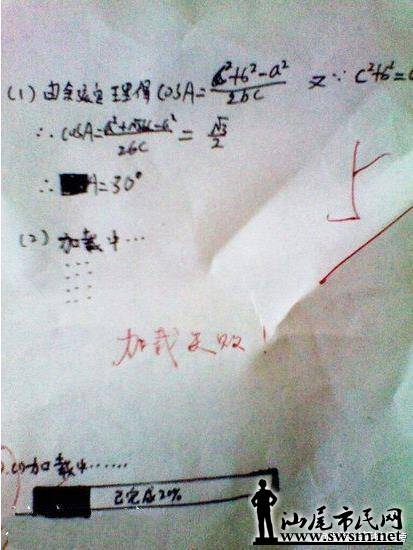 (1) 由余弦定理得 cosA=c²+b²-a²/2bc 又∵ c²+b²=
∴ cosA=a²+√3bc-a²/2bc = √3/2
∴ A=30°
5
(2) 加载中…
加载失败!
(1)加载中……
已完成20%
汕尾市民网
www.swsm.net